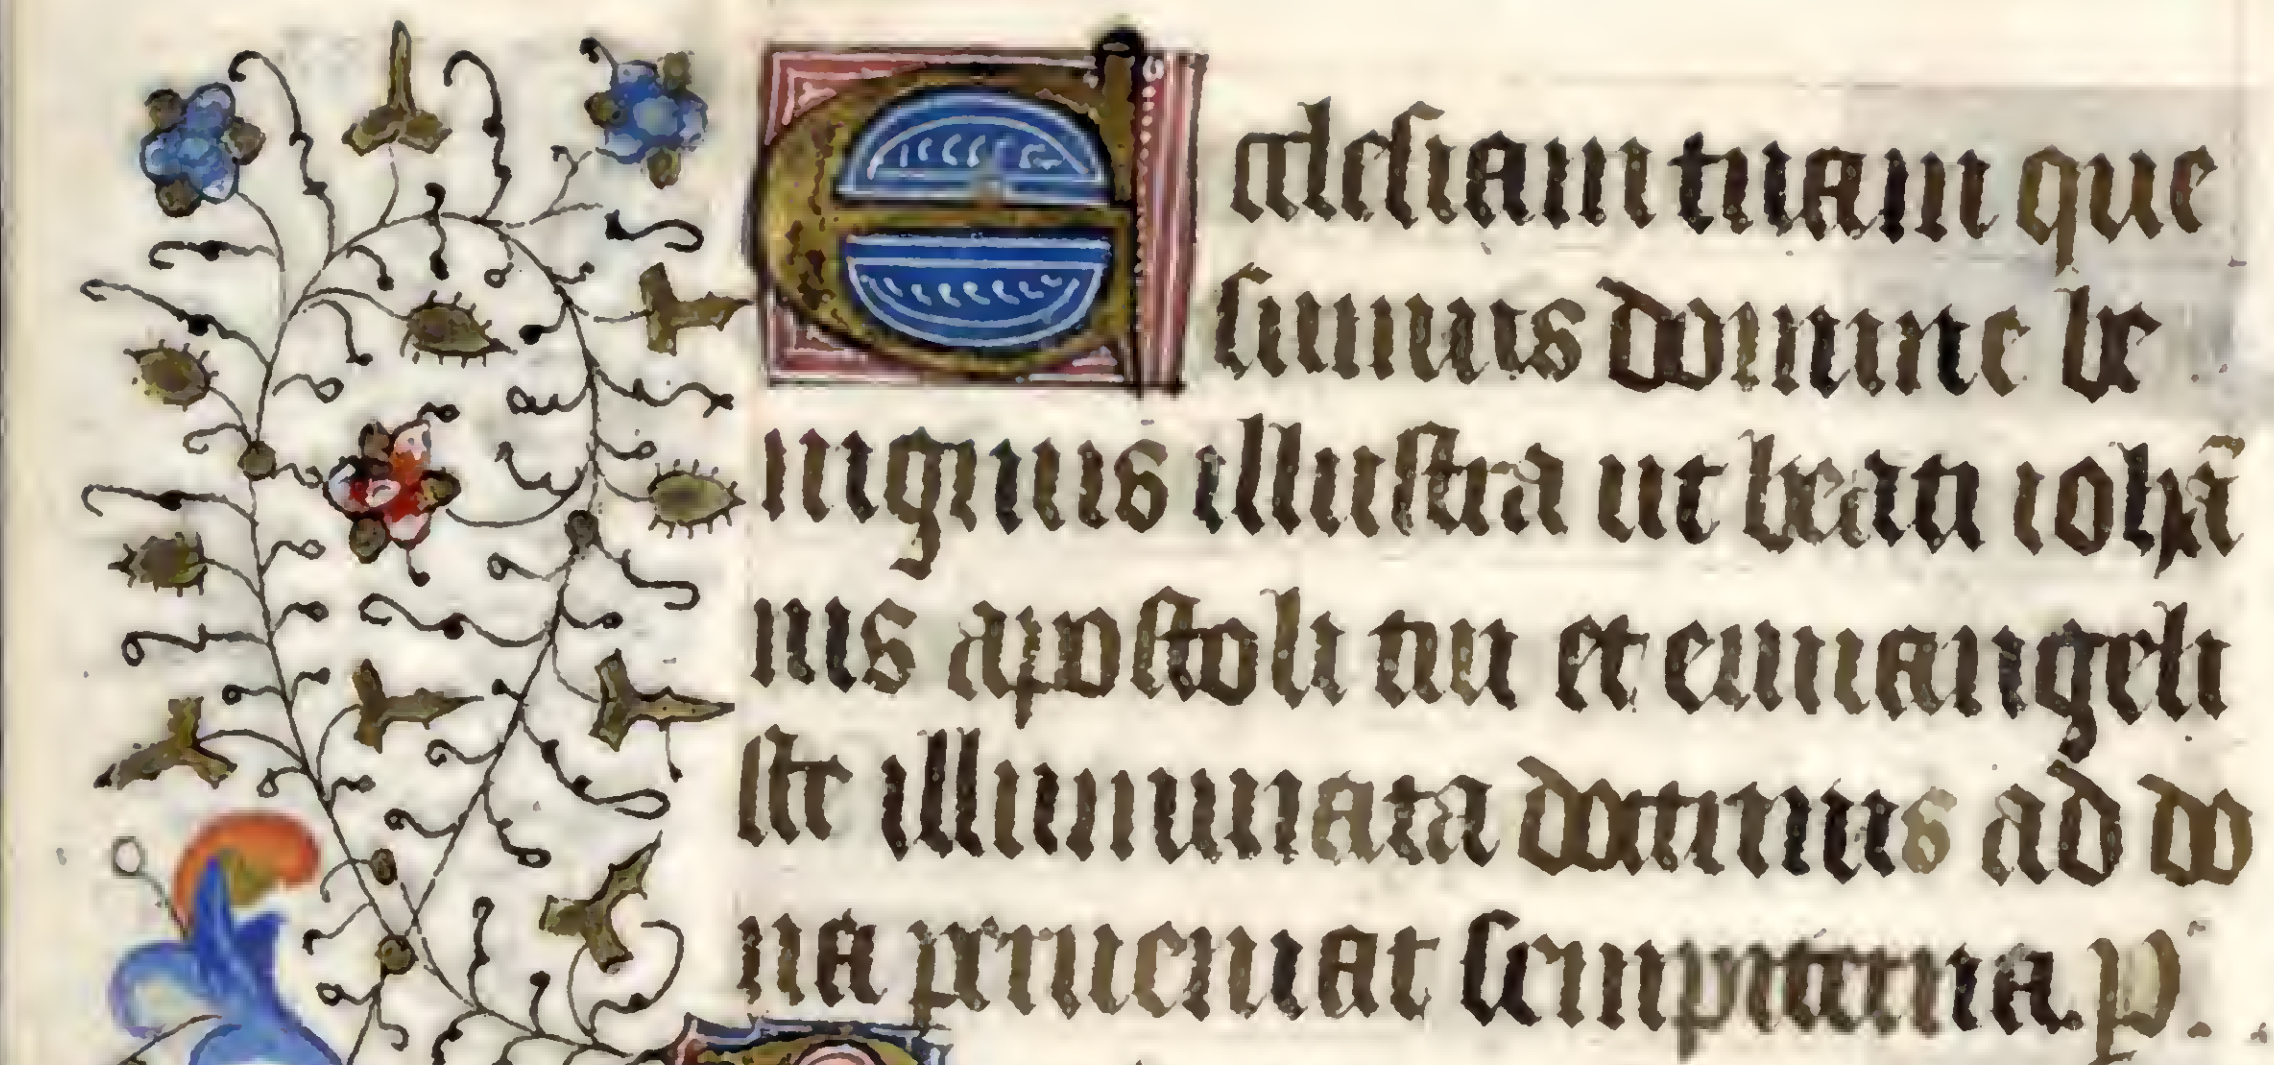 Ecclesiam tuam que
sumus domine be
nignus illustra ut beati iohã
nis apostoli tui et euuangeli
ste illuminata doctrinis ad do
na perueniat sempiterna. p.